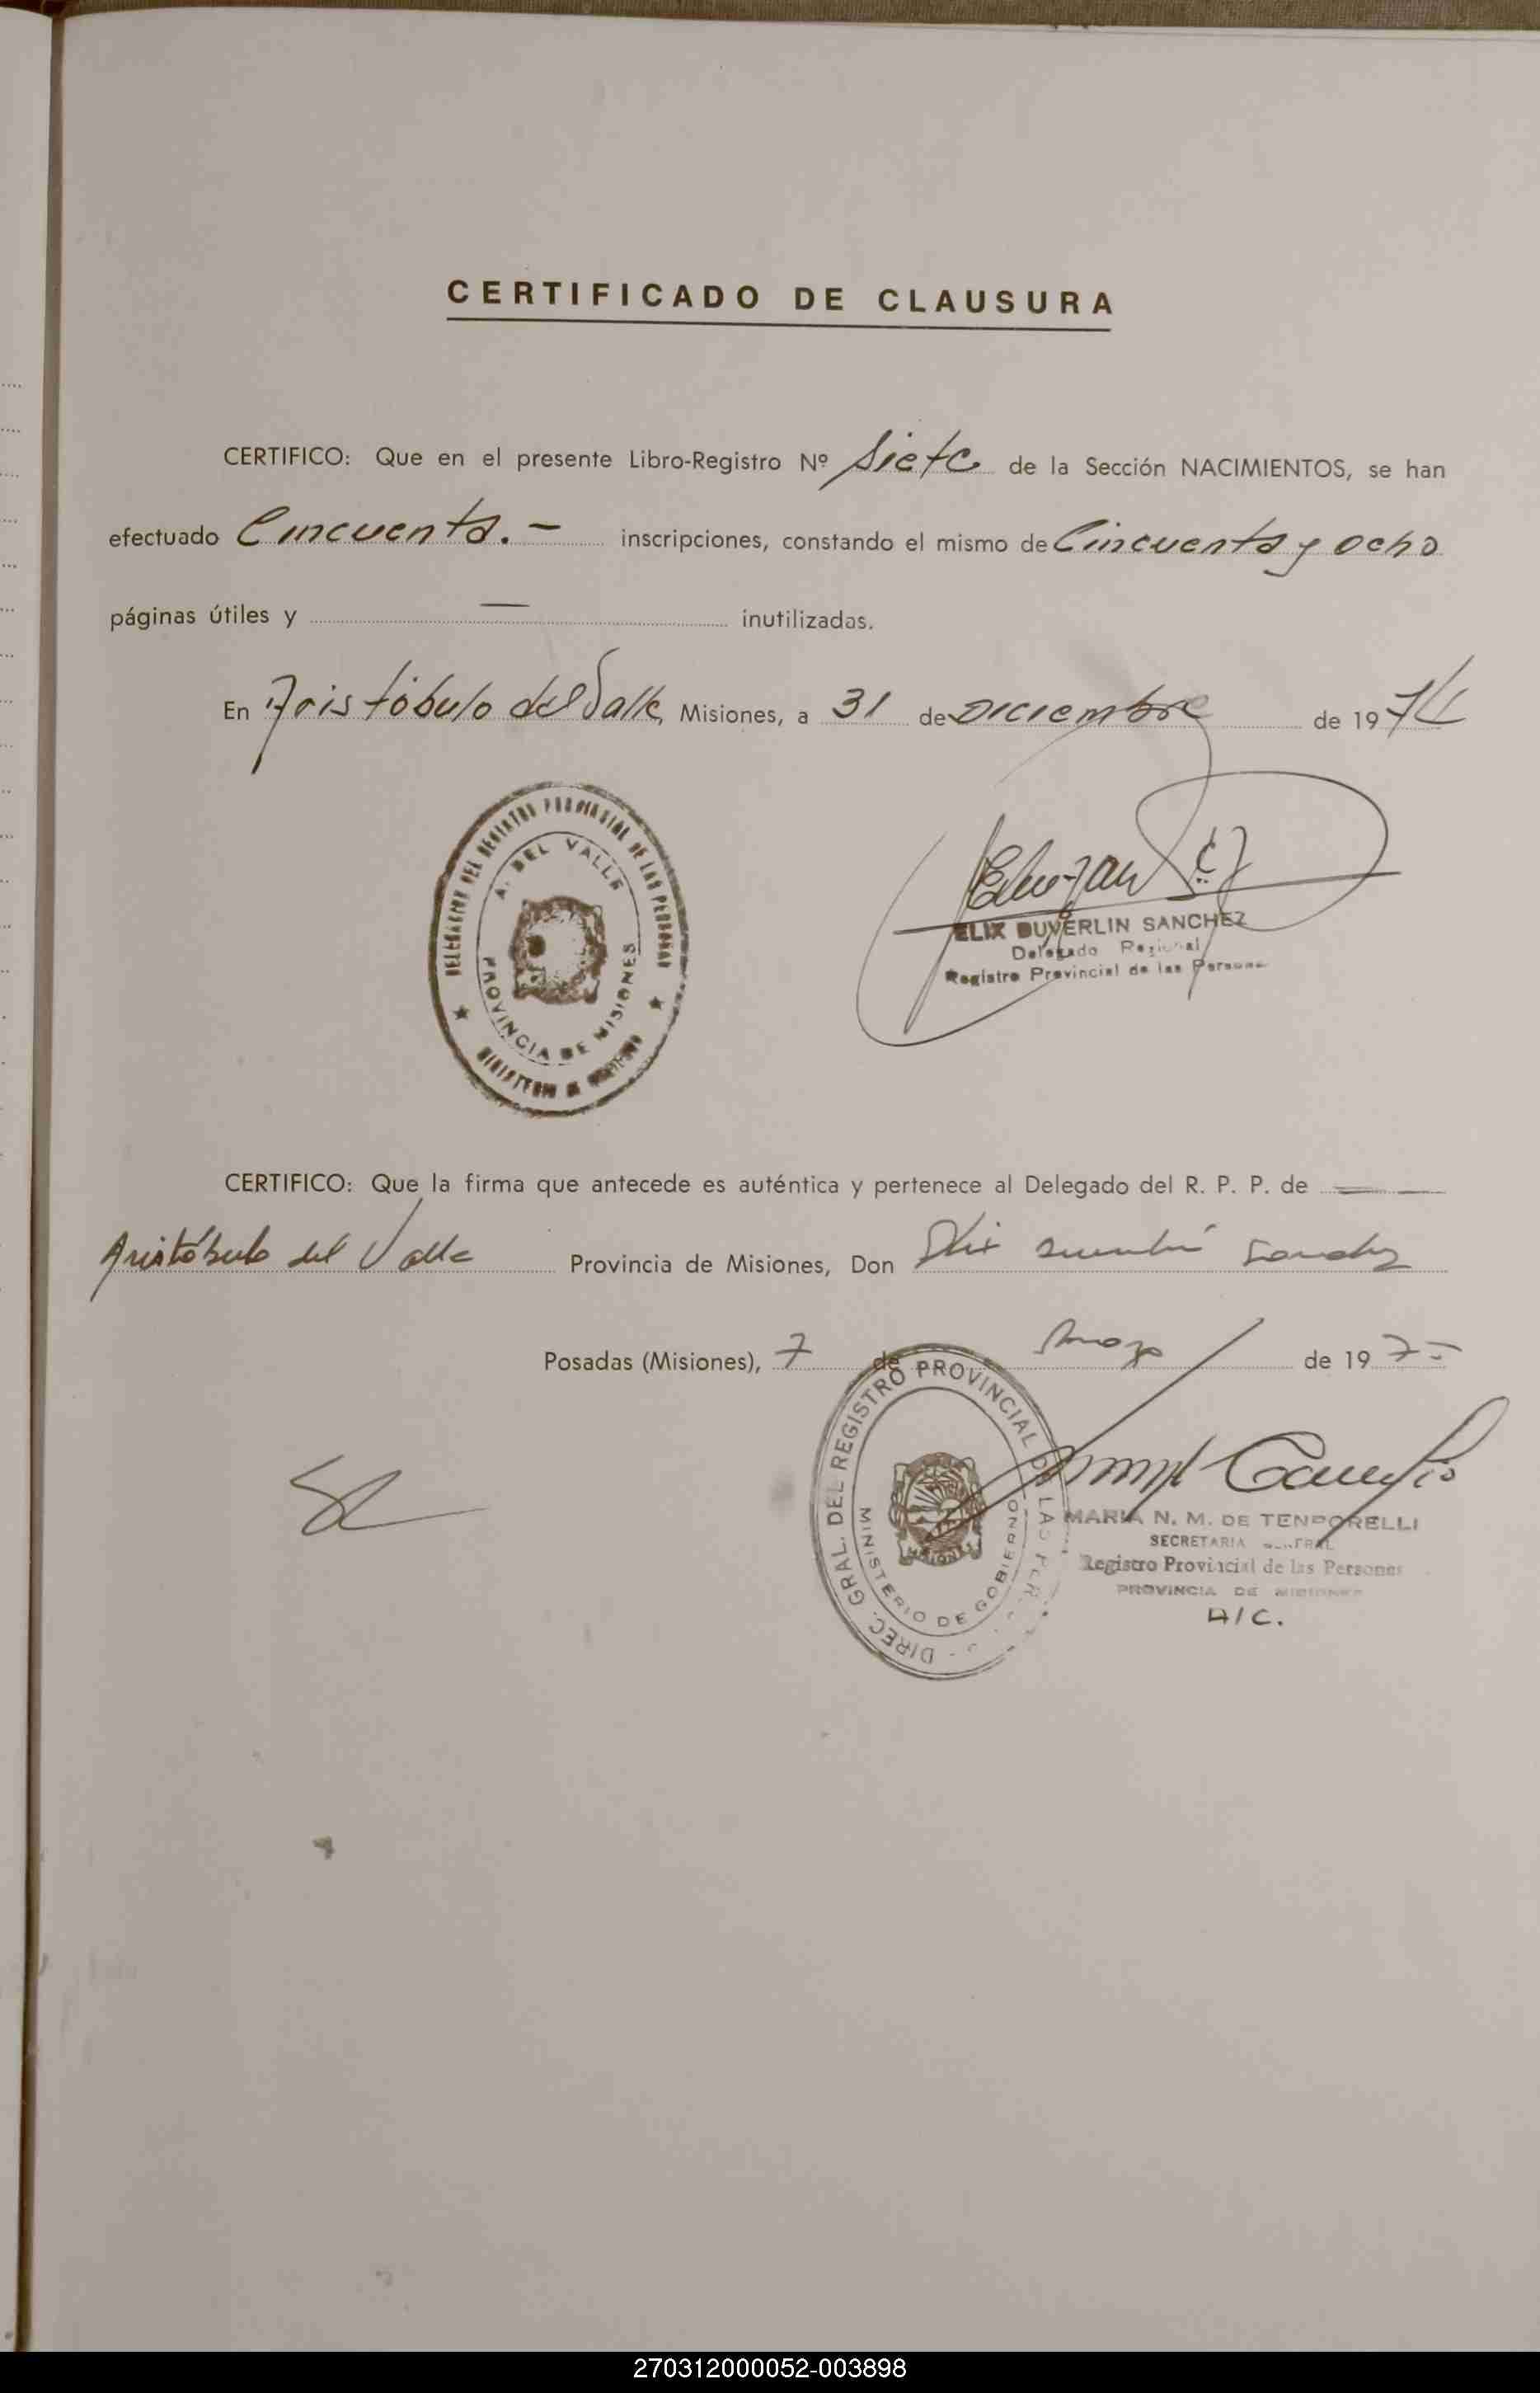 CERTIFICADO DE CLAUSURA
CERTIFICO: Que en el presente Libro-Registro Nº Siete de la Sección NACIMIENTOS, se han
efectuado Cincuenta.- inscripciones, constando el mismo de Cincuenta y ocho
páginas útiles y — inutilizadas.
En Aristóbulo del Valle, Misiones, a 31 de Diciembre de 1974
DELEGACION DEL REGISTRO PROVINCIAL DE LAS PERSONAS
A. DEL VALLE
PROVINCIA DE MISIONES
MINISTERIO DE GOBIERNO
ELIX DUVERLIN SANCHEZ
Delegado Regional
Registro Provincial de las Personas
CERTIFICO: Que la firma que antecede es auténtica y pertenece al Delegado del R. P. P. de
Aristóbulo del Valle Provincia de Misiones, Don Elix Sanchez
Posadas (Misiones), 7 de de 197
DIREC. GRAL. DEL REGISTRO PROVINCIAL DE LAS PER
MINISTERIO DE GOBIERNO
MISIONES
MARIA N. M. DE TEMPORELLI
SECRETARIA GENERAL
Registro Provincial de las Personas
PROVINCIA DE MISIONES
A/C.
270312000052-003898